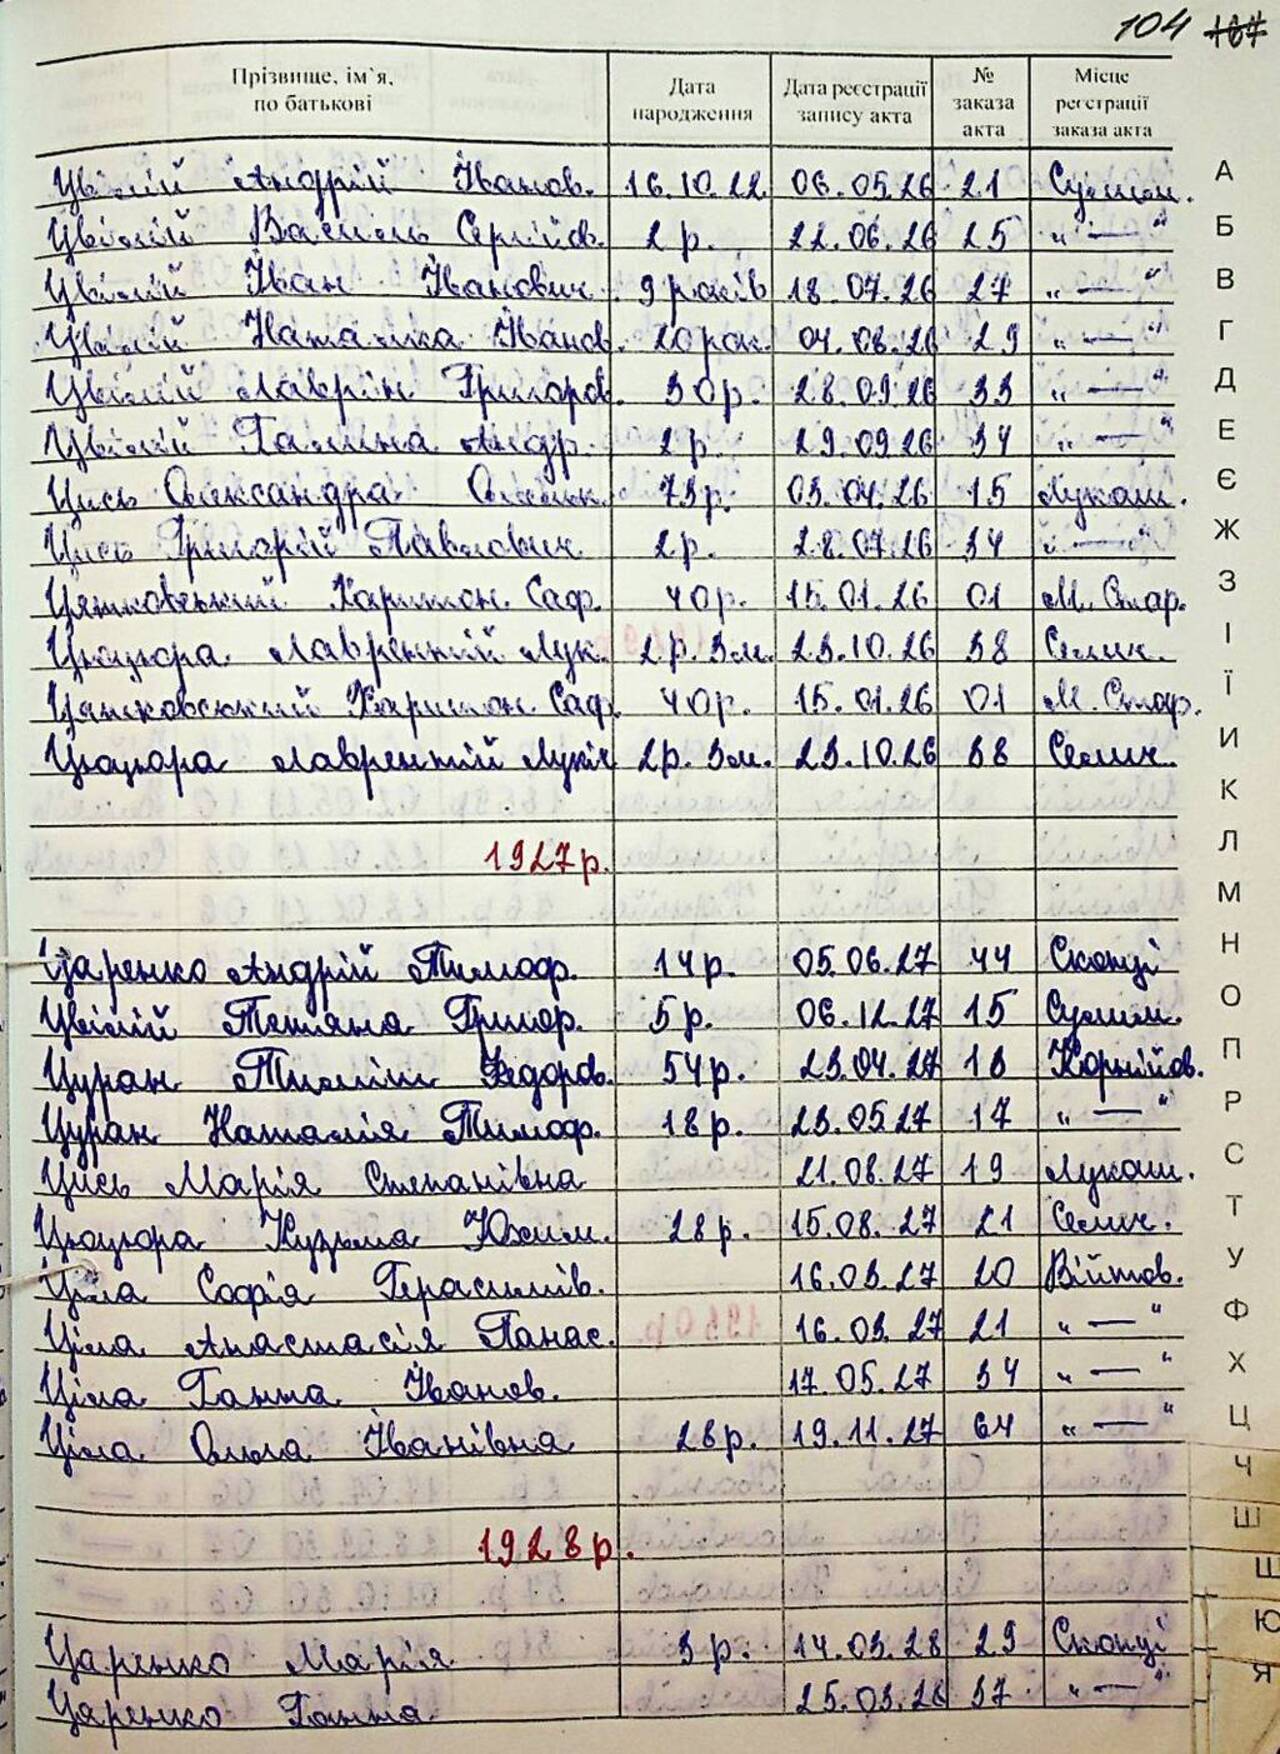 104 167
Прізвище, ім`я, по батькові Дата народження Дата реєстрації запису акта № заказа акта Місце реєстрації заказа акта
Цвілій Андрій Іванов. 16.10.22 06.05.26 21 Сулим.
Цвілій Василь Сергійов. 2 р. 22.06.26 25 „ — "
Цвілій Іван Іванович 9 років 18.07.26 27 „ — "
Цвілій Наталка Іванов. 20 рок. 04.08.26 29 „ — "
Цвілій Лаврін Григоров. 30р. 28.09.26 33 „ — "
Цвілій Галина Андр. 2 р. 29.09.26 34 „ — "
Цись Олександра 73р. 03.04.26 15 Лукаш.
Цись Григорій Павлович 2р. 28.07.26 34 „ — "
Цяшковський Харитон Саф. 40р. 15.01.26 01 М. Стар.
Цюцюра Лаврентій Лук. 2 р. 3м. 23.10.26 38 Селич.
Цяшковський Харитон Саф. 40р. 15.01.26 01 М. Стар.
Цюцюра Лаврентій Лукіч 2р. 3м. 23.10.26 38 Селич.
1927р.
Царенко Андрій Тимоф. 14р. 05.06.27 44 Скопці
Цвілій Тетяна Григор. 5 р. 06.12.27 15 Сулим.
Цуран Тиміш Федоров. 54р. 23.04.27 13 Корнійов.
Цуран Наталія Тимоф. 18 р. 23.05.27 17 „ — "
Цись Марія Степанівна 21.08.27 19 Лукаш.
Цюцюра Кузьма Юхим. 28р. 15.08.27 21 Селич.
Ціла Софія Герасимів. 16.03.27 20 Війтов.
Ціла Анастасія Панас. 16.03.27 21 „ — "
Ціла Ганна Іванов. 17.05.27 34 „ — "
Ціла Ольга Іванівна 28р. 19.11.27 64 „ — "
1928р.
Царенко Марія 3 р. 14.03.28 29 Скопці
Царенко Ганна 25.03.28 37 „ — "
А
Б
В
Г
Д
Е
Є
Ж
З
І
Ї
И
К
Л
М
Н
О
П
Р
С
Т
У
Ф
Х
Ц
Ч
Ш
Щ
Ю
Я